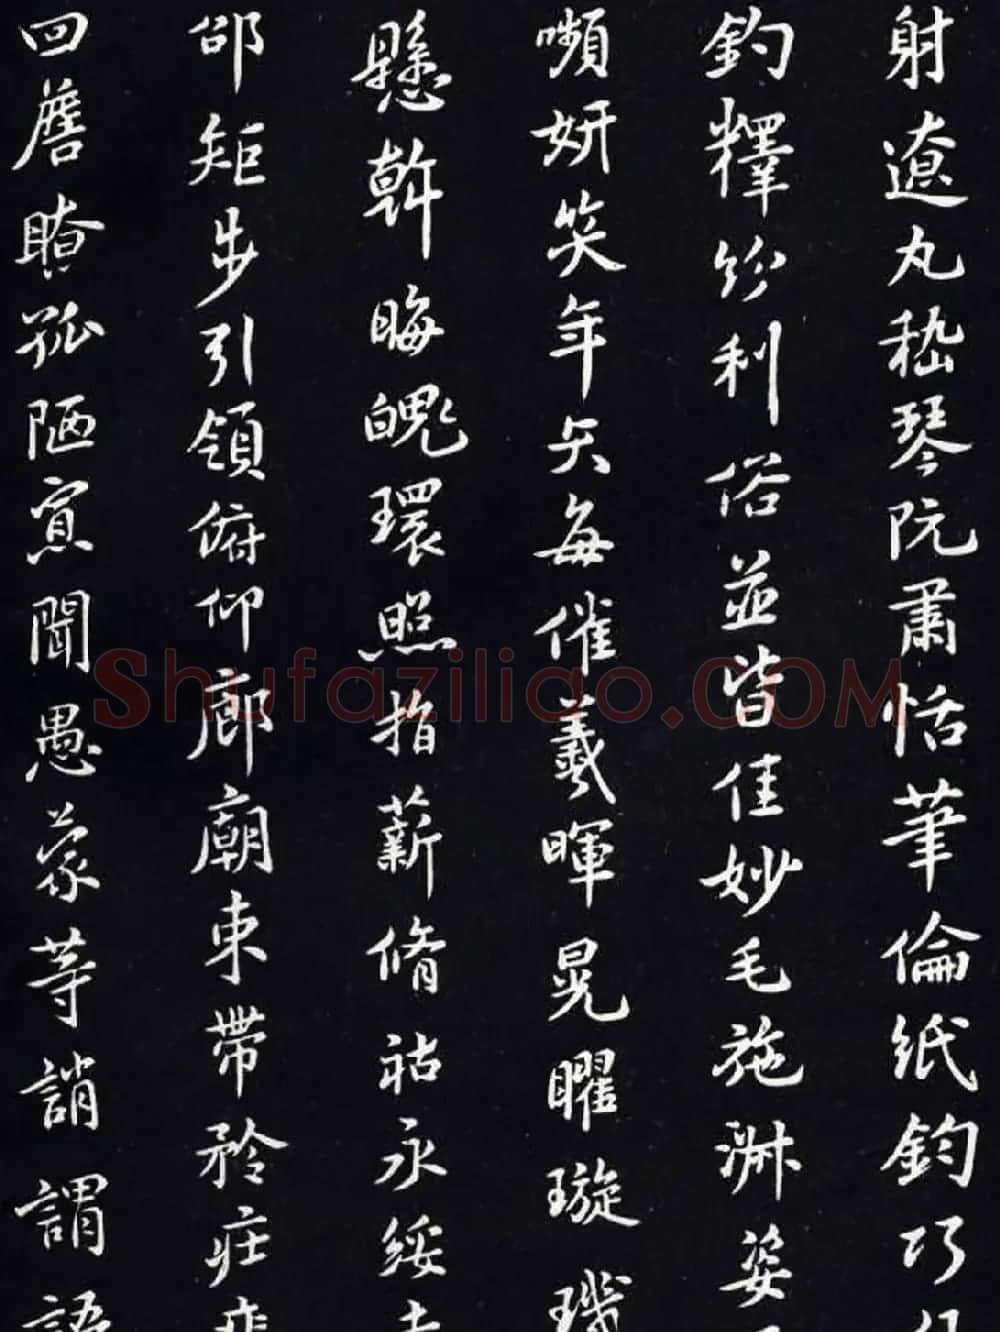 射遼丸嵇琴阮肅恬筆倫紙鈞巧任
釣釋紛利俗並皆佳妙毛施淑姿
嚬妍笑年矢每催羲暉晃曜璇璣
懸斡晦魄環照指薪脩祜永綏吉
邵矩步引領俯仰廊廟束帶矜莊
徊瞻眺孤陋寡聞愚蒙等誚謂語
Shufaziliao.COM